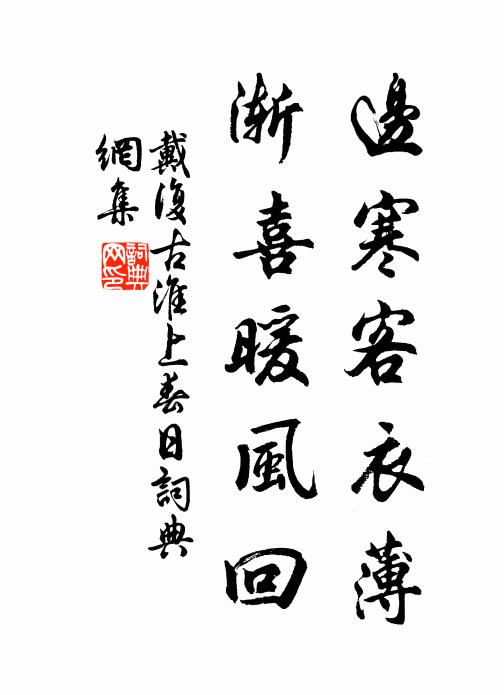 邊寒客衣薄
漸喜暖風回
戴復古淮上春日詞典
網集
詞典
网印